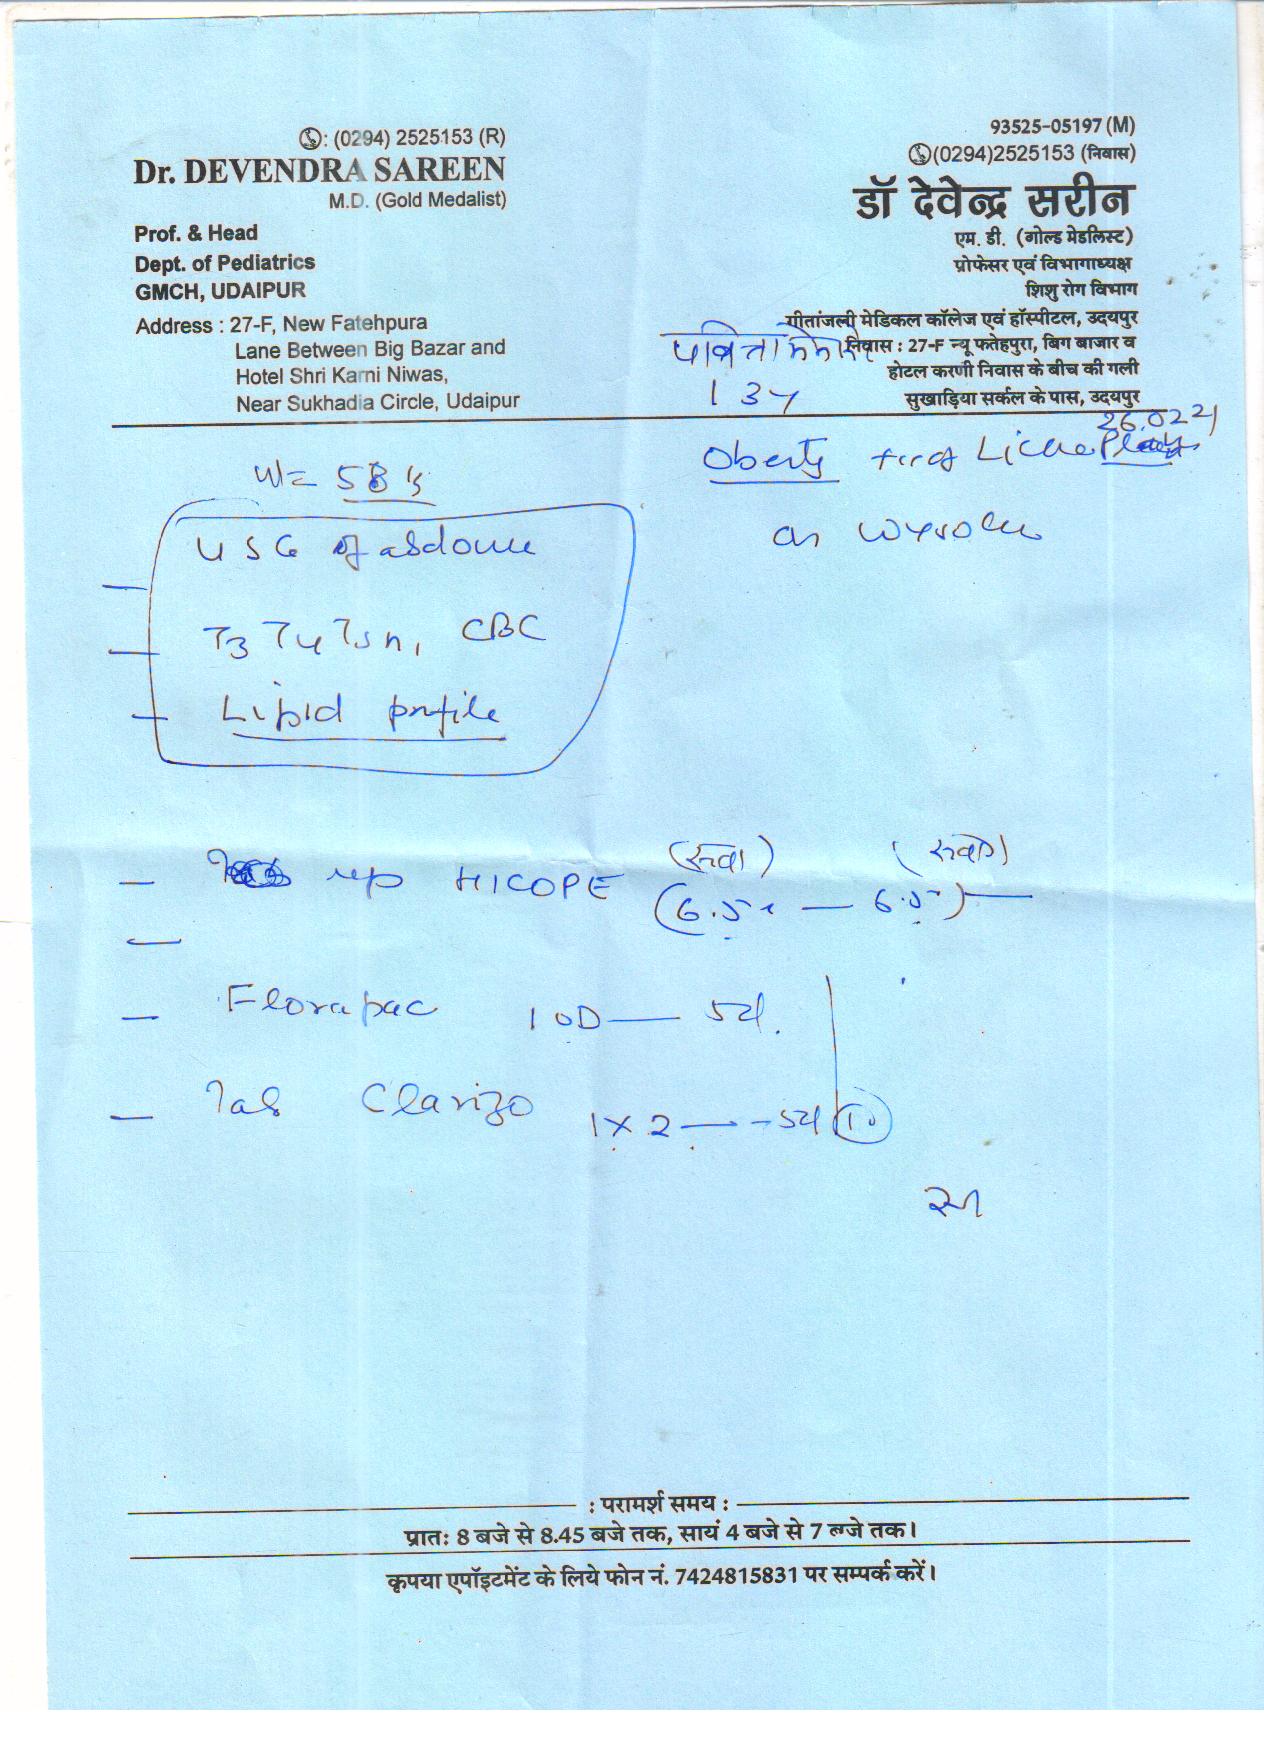 ✆: (0294) 2525153 (R)
Dr. DEVENDRA SAREEN
M.D. (Gold Medalist)
Prof. & Head
Dept. of Pediatrics
GMCH, UDAIPUR
Address : 27-F, New Fatehpura
Lane Between Big Bazar and
Hotel Shri Karni Niwas,
Near Sukhadia Circle, Udaipur
93525-05197 (M)
✆(0294)2525153 (निवास)
डॉ देवेन्द्र सरीन
एम. डी. (गोल्ड मेडलिस्ट)
प्रोफेसर एवं विभागाध्यक्ष
शिशु रोग विभाग
गीतांजली मेडिकल कॉलेज एवं हॉस्पीटल, उदयपुर
निवास : 27-F न्यू फतेहपुरा, बिग बाजार व
होटल करणी निवास के बीच की गली
सुखाड़िया सर्कल के पास, उदयपुर
13y
26.02 21
W= 58 
USG of 
T3 T4 Tsh, CBC
Lipid profile
on wysolone
HICOPE
Florapac 1 OD — 5d.
Tab Clarizo 1x2 — 5d 10
: परामर्श समय :
प्रातः 8 बजे से 8.45 बजे तक, सायं 4 बजे से 7 बजे तक।
कृपया एपॉइटमेंट के लिये फोन नं. 7424815831 पर सम्पर्क करें।